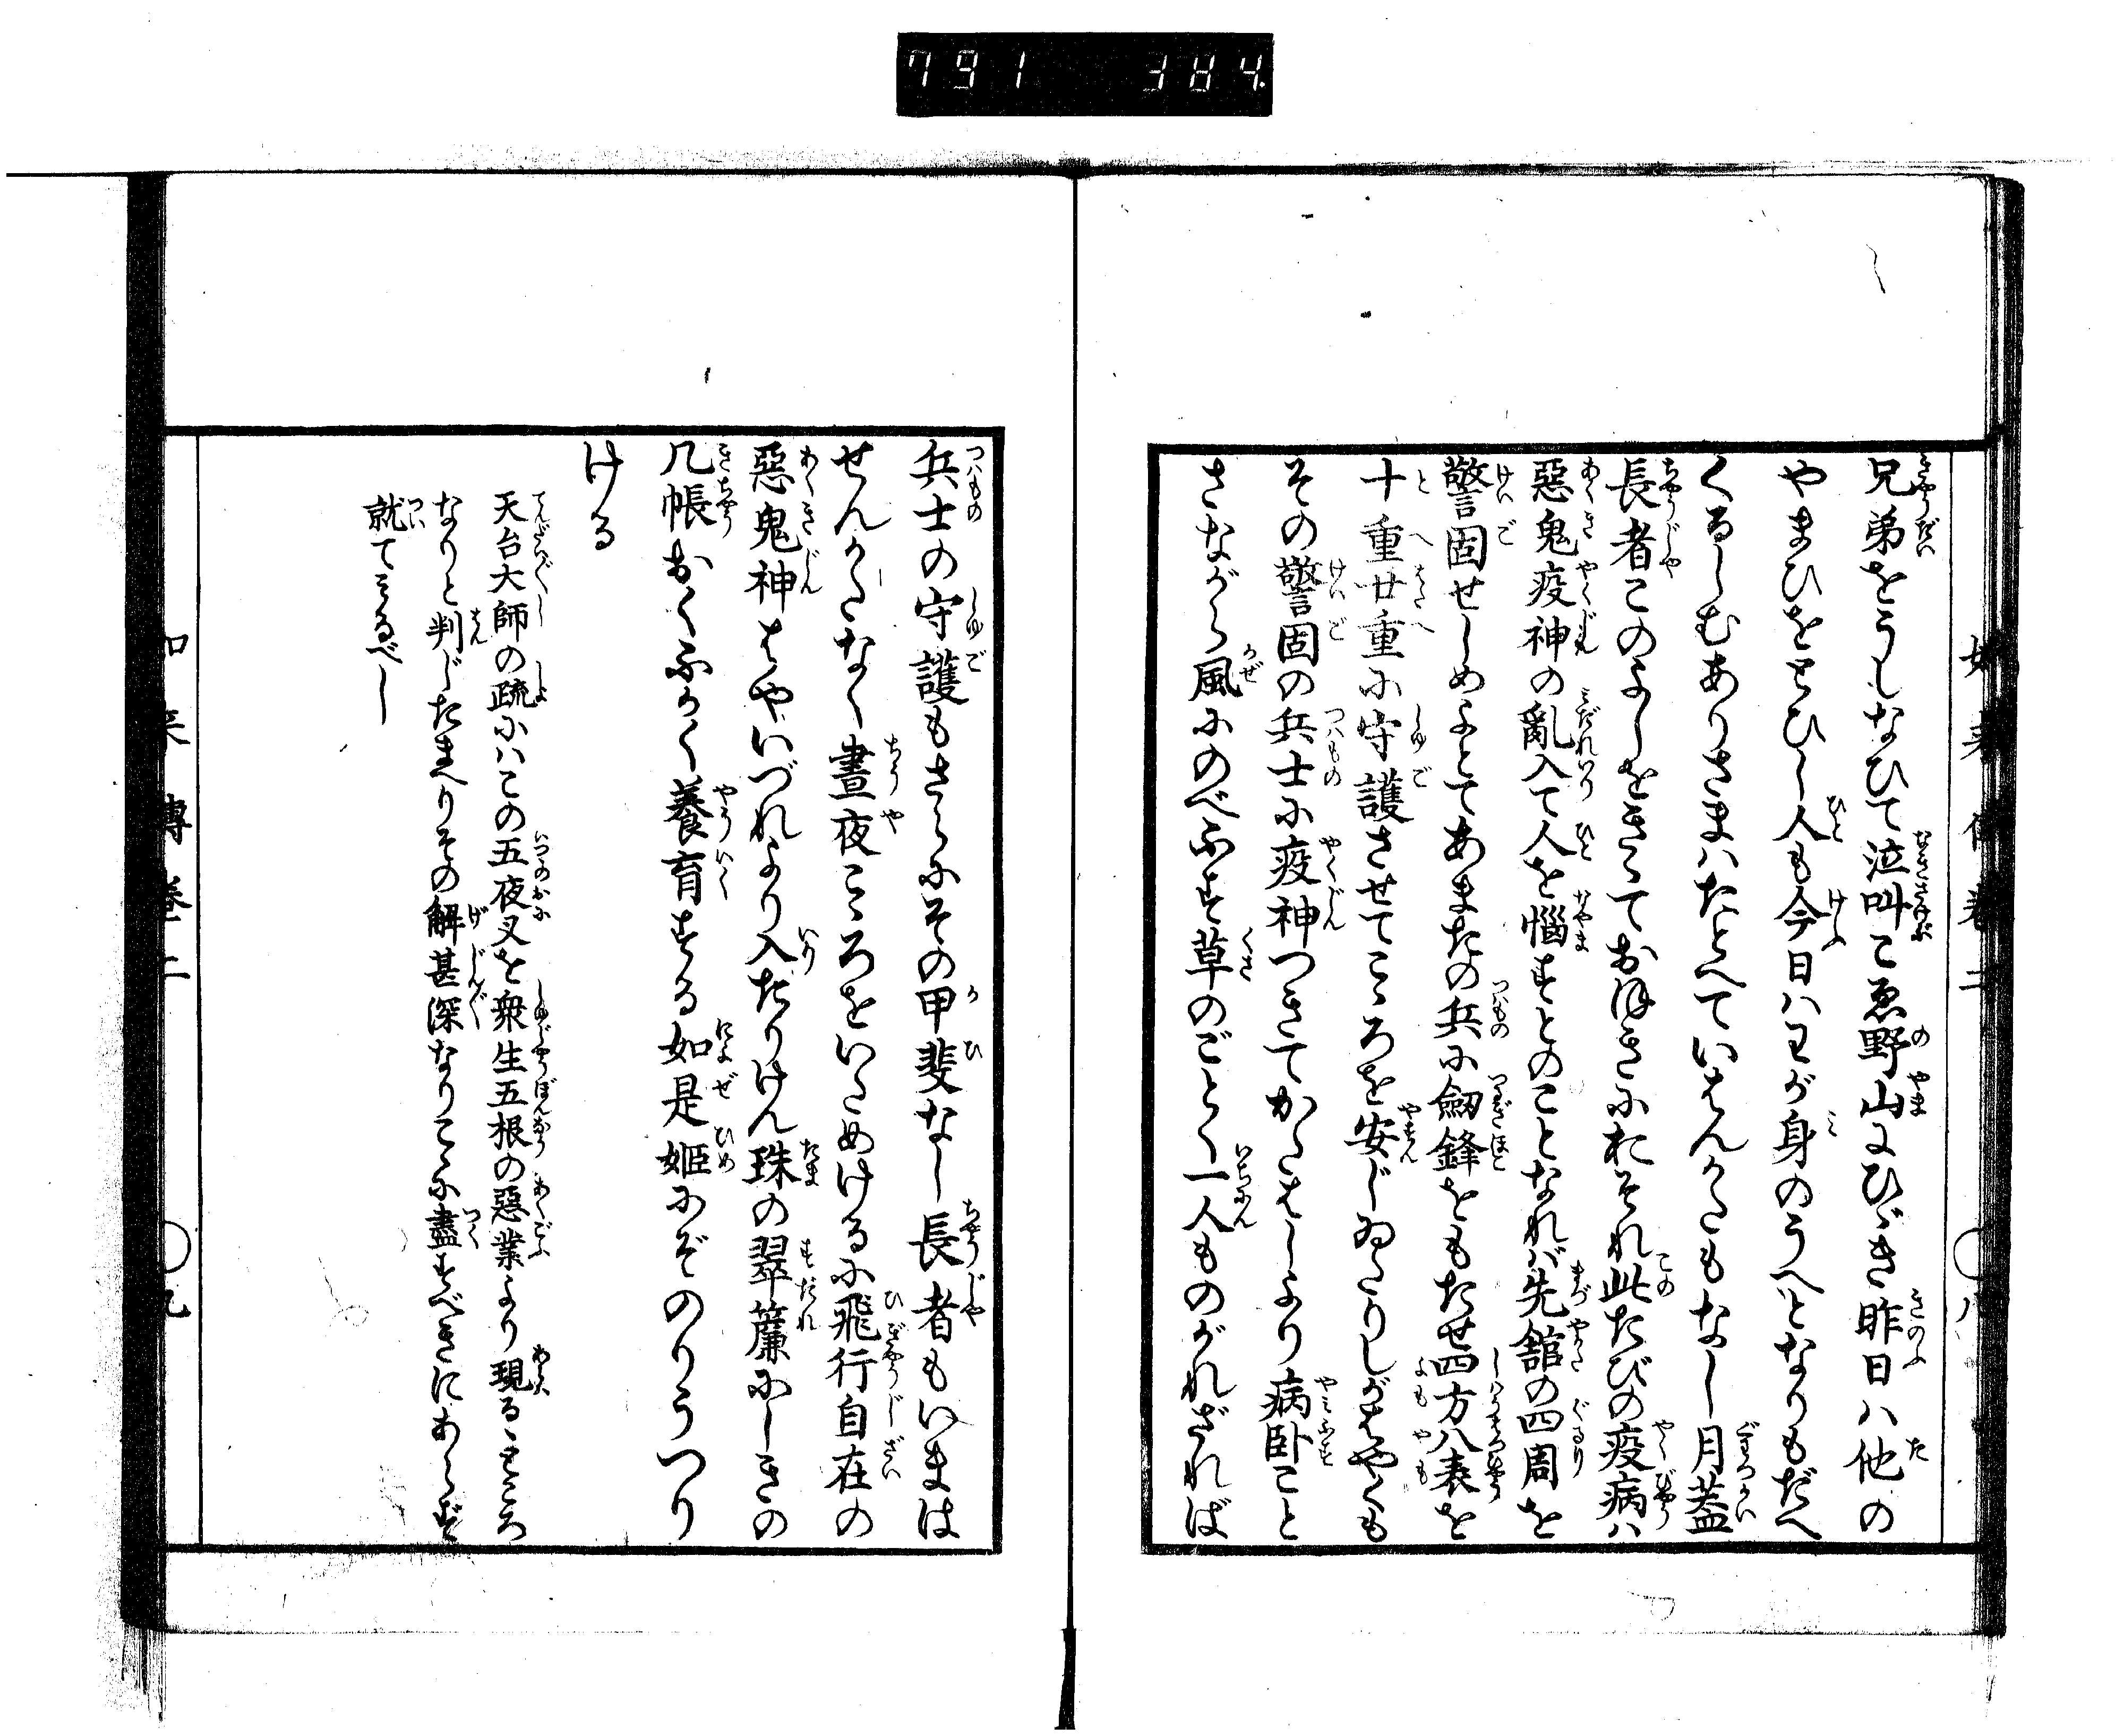 791 384
兄弟をうしなひて泣叫こゑ野山にひゞき昨日ハ他の
やまひをとひし人も今日ハわが身のうへとなりもだへ
くるしむありさまハたとへていはんかたもなし月蓋
長者このよしをきゝておほきにおそれ此たびの疫病ハ
惡鬼疫神の亂入て人を惱すとのことなれバ先舘の四周を
警固せしめよとてあまたの兵に劔鋒をもたせ四方八表を
十重廿重に守護させてこゝろを安じゐたりしがはやくも
その警固の兵士に疫神つきてかたはしより病臥こと
さながら風にのべふす草のごとく一人ものがれざれば
如来傳巻二 〇八
兵士の守護もさらにその甲斐なし長者もいまは
せんかたなく晝夜こゝろをいためけるに飛行自在の
惡鬼神はやいづれより入たりけん珠の翠簾にしきの
几帳おくふかく養育する如是姫にぞのりうつり
ける
天台大師の疏にハこの五夜叉を衆生五根の惡業より現るゝところ
なりと判じたまへりその解甚深なりこゝに盡すべきにあらず
就てみるべし
如来傳巻二 〇九